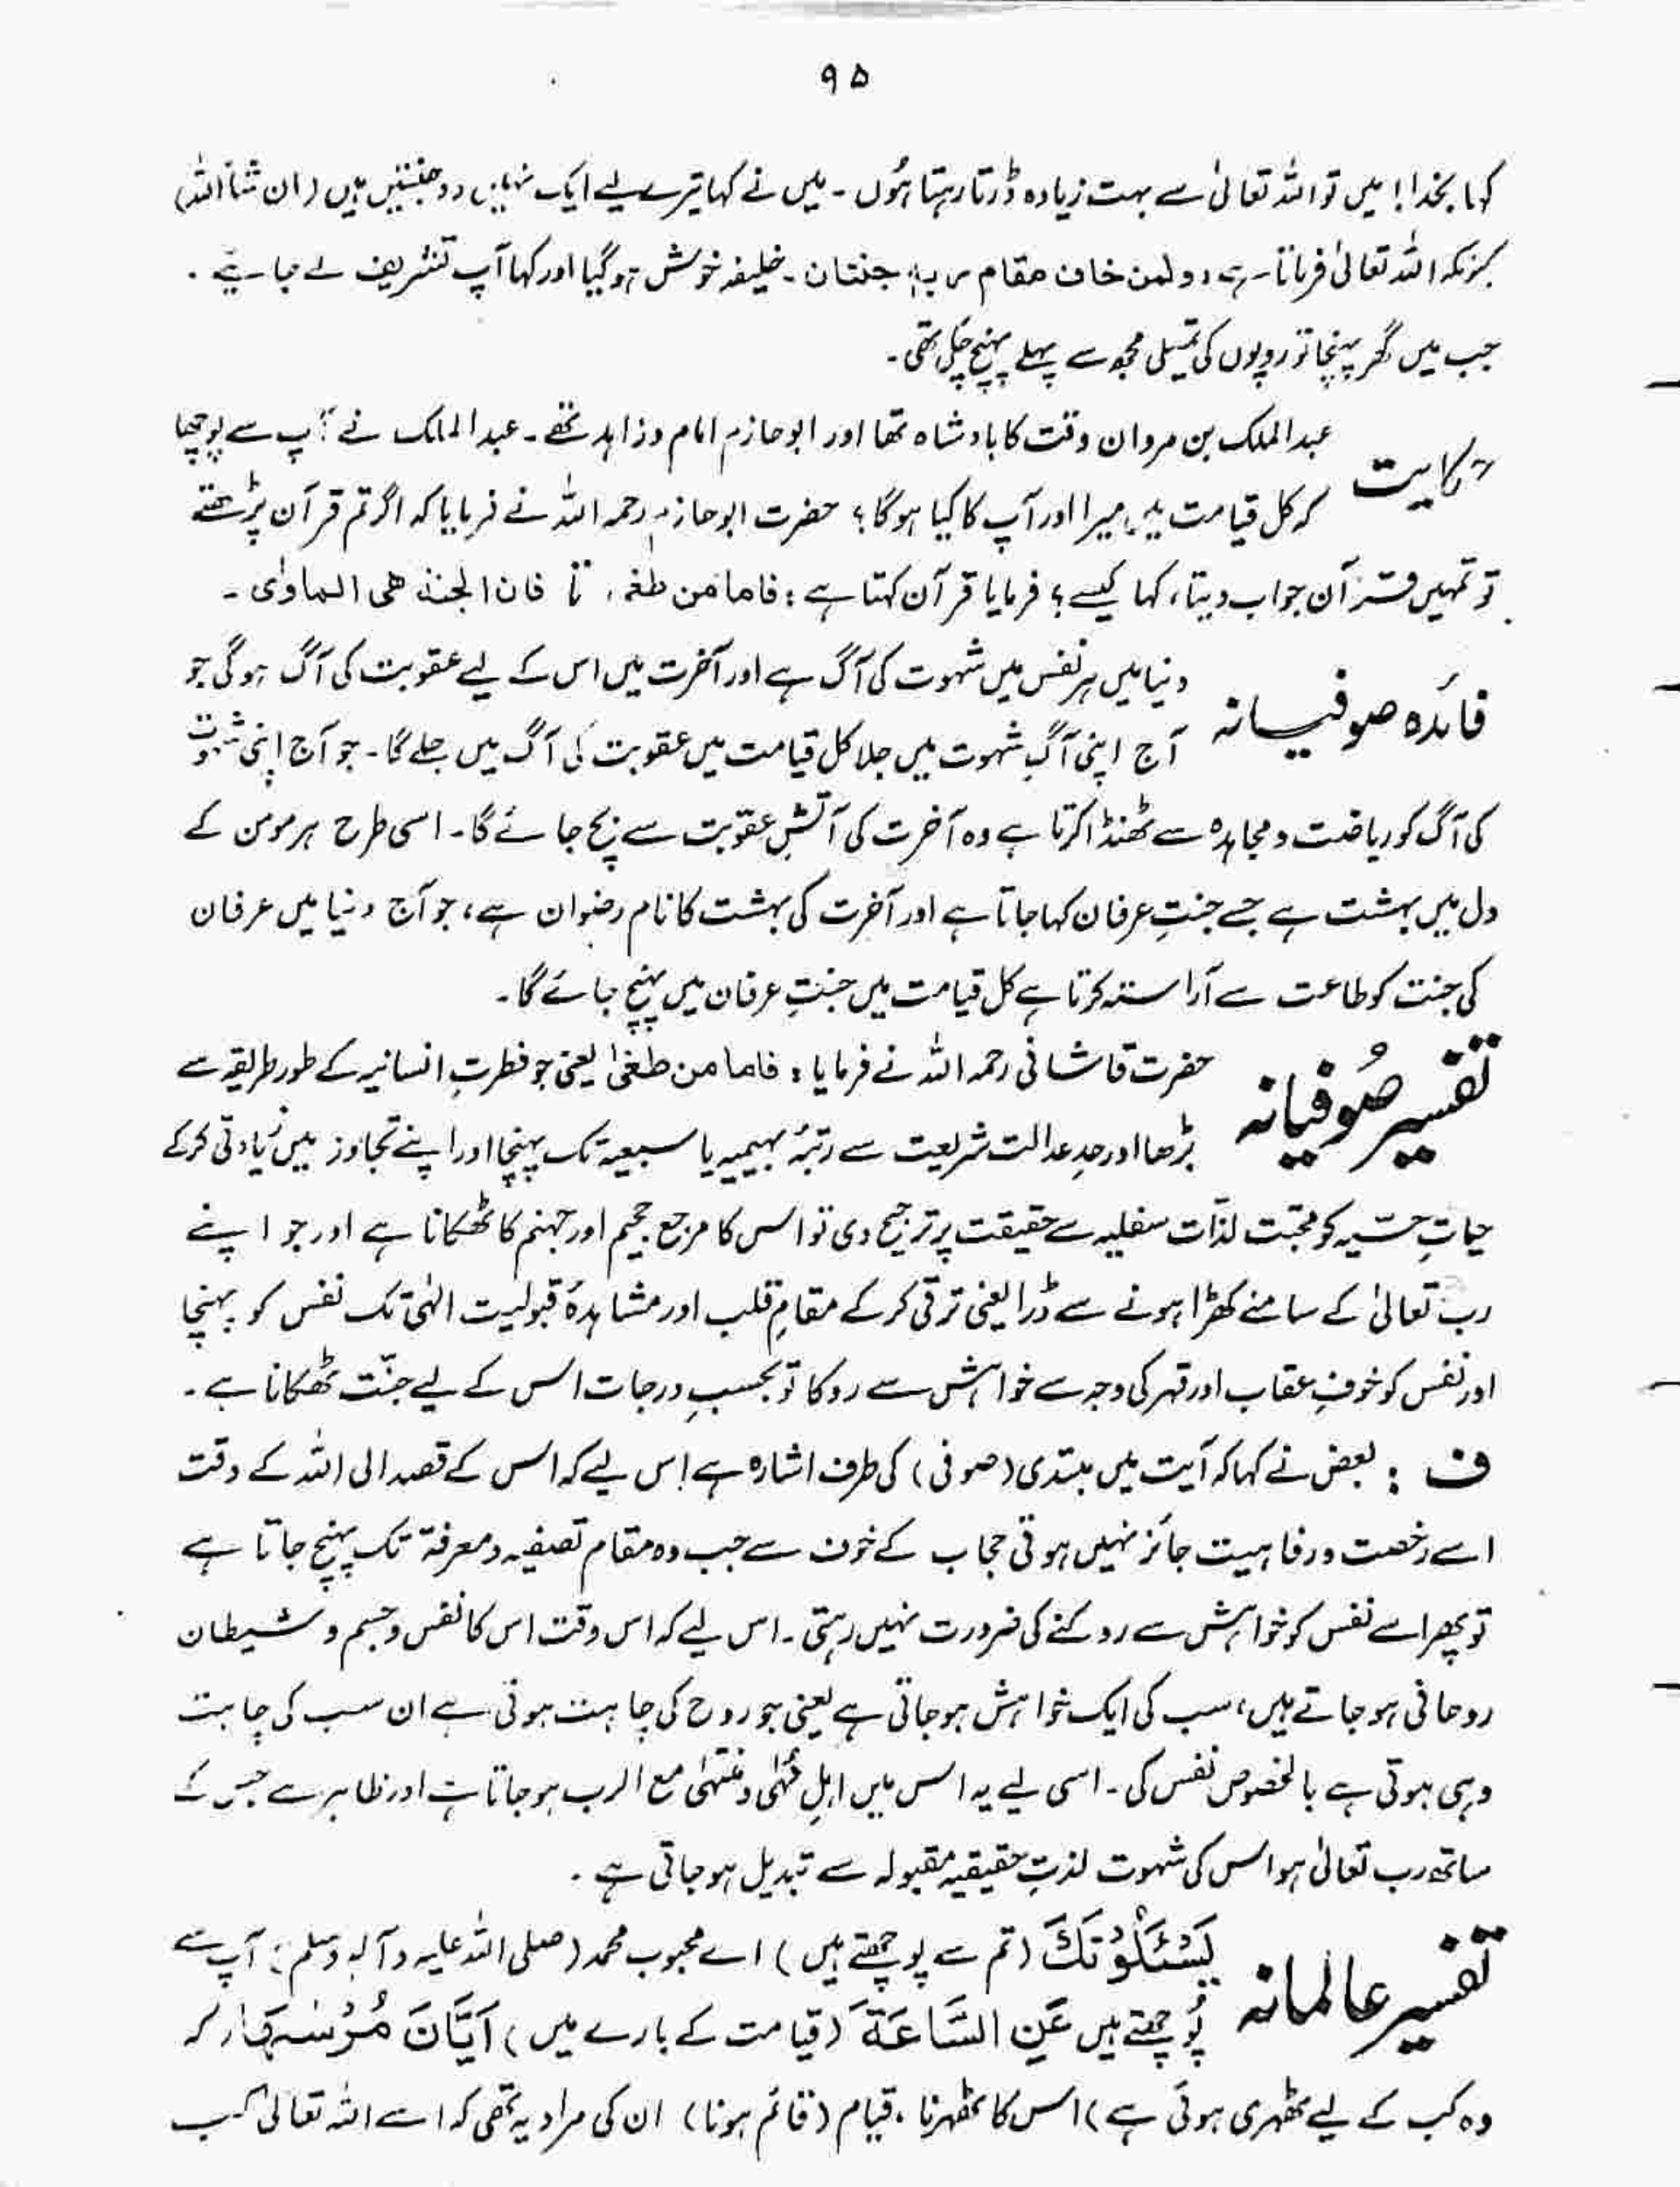 ۹۵
کہا بخدا! میں تو اللہ تعالیٰ سے بہت زیادہ ڈرتا رہتا ہُوں ۔ میں نے کہا تیرے لیے ایک نہیں دو جنتیں ہیں (ان شاء اللہ)
کیونکہ اللہ تعالیٰ فرماتا ہے ولمن خاف مقام ربہ جنتان ۔ خلیفہ خوش ہو گیا اور کہا آپ تشریف لے جایئے ۔
جب میں گھر پہنچا تو روپوں کی تھیلی مجھ سے پہلے پہنچ چکی تھی ۔
حکایت عبدالملک بن مروان وقت کا بادشاہ تھا اور ابوحازم امام و زاہد تھے ۔ عبدالملک نے آپ سے پوچھا
کہ کل قیامت میں میرا اور آپ کا کیا ہوگا ؟ حضرت ابوحازم رحمہ اللہ نے فرمایا کہ اگر تم قرآن پڑھتے
تو تمہیں قرآن جواب دیتا، کہا کیسے ؟ فرمایا قرآن کہتا ہے : فاما من طغٰی تا فان الجنۃ ھی الماوٰی ۔
فائدہ صوفیانہ دنیا میں ہر نفس میں شہوت کی آگ ہے اور آخرت میں اس کے لیے عقوبت کی آگ ہوگی جو
آج اپنی آگِ شہوت میں جلا کل قیامت میں عقوبت کی آگ میں جلے گا ۔ جو آج اپنی شہوت
کی آگ کو ریاضت و مجاہدہ سے ٹھنڈا کرتا ہے وہ آخرت کی آتشِ عقوبت سے بچ جائے گا ۔ اسی طرح ہر مومن کے
دل میں بہشت ہے جسے جنتِ عرفان کہا جاتا ہے اور آخرت کی بہشت کا نام رضوان ہے ، جو آج دنیا میں عرفان
کی جنت کو طاعت سے آراستہ کرتا ہے کل قیامت میں جنتِ عرفان میں پہنچ جائے گا ۔
تفسیر صُوفیانہ حضرت قاشانی رحمہ اللہ نے فرمایا : فاما من طغٰی یعنی جو فطرتِ انسانیہ کے طور طریقہ سے
بڑھا اور حدِ عدالت شریعت سے رتبۂ بہیمیہ یا سبعیہ تک پہنچا اور اپنے تجاوز میں زیادتی کرکے
حیاتِ حسّیہ کو محبّت لذّات سفلیہ سے حقیقت پر ترجیح دی تو اس کا مرجع جحیم اور جہنم کا ٹھکانا ہے اور جو اپنے
رب تعالیٰ کے سامنے کھڑا ہونے سے ڈرا یعنی ترقی کرکے مقامِ قلب اور مشاہدۂ قبولیت الٰہی تک نفس کو پہنچا
اور نفس کو خوفِ عقاب اور قہر کی وجہ سے خواہش سے روکا تو بحسبِ درجات اس کے لیے جنّت ٹھکانا ہے ۔
ف : بعض نے کہا کہ آیت میں مبتدی (صوفی) کی طرف اشارہ ہے اِس لیے کہ اس کے قصد الی اللہ کے وقت
اسے رخصت و رفاہیت جائز نہیں ہوتی حجاب کے خوف سے جب وہ مقام تصفیہ و معرفۃ تک پہنچ جاتا ہے
تو پھر اسے نفس کو خواہش سے روکنے کی ضرورت نہیں رہتی ۔ اس لیے کہ اس وقت اس کا نفس و جسم و شیطان
روحانی ہو جاتے ہیں ، سب کی ایک خواہش ہو جاتی ہے یعنی جو روح کی چاہت ہوتی ہے ان سب کی چاہت
وہی ہوتی ہے بالخصوص نفس کی ۔ اسی لیے یہ اس میں اہلِ نُہٰی و منتہٰی مع الرب ہو جاتا ہے اور ظاہر ہے جس کے
ساتھ رب تعالیٰ ہو اس کی شہوت لذتِ حقیقیہ مقبولہ سے تبدیل ہو جاتی ہے ۔
تفسیر عالمانہ یَسْئَلُوْنَكَ (تم سے پوچھتے ہیں) اے محبوب محمد (صلی اللہ علیہ وآلہ وسلم) آپ سے
پُوچھتے ہیں عَنِ السَّاعَۃَ (قیامت کے بارے میں) اَیَّانَ مُرْسٰهَا (کہ
وہ کب کے لیے ٹھہری ہوئی ہے) اس کا ٹھہرنا ، قیام (قائم ہونا) ان کی مراد یہ تھی کہ اسے اللہ تعالیٰ کب